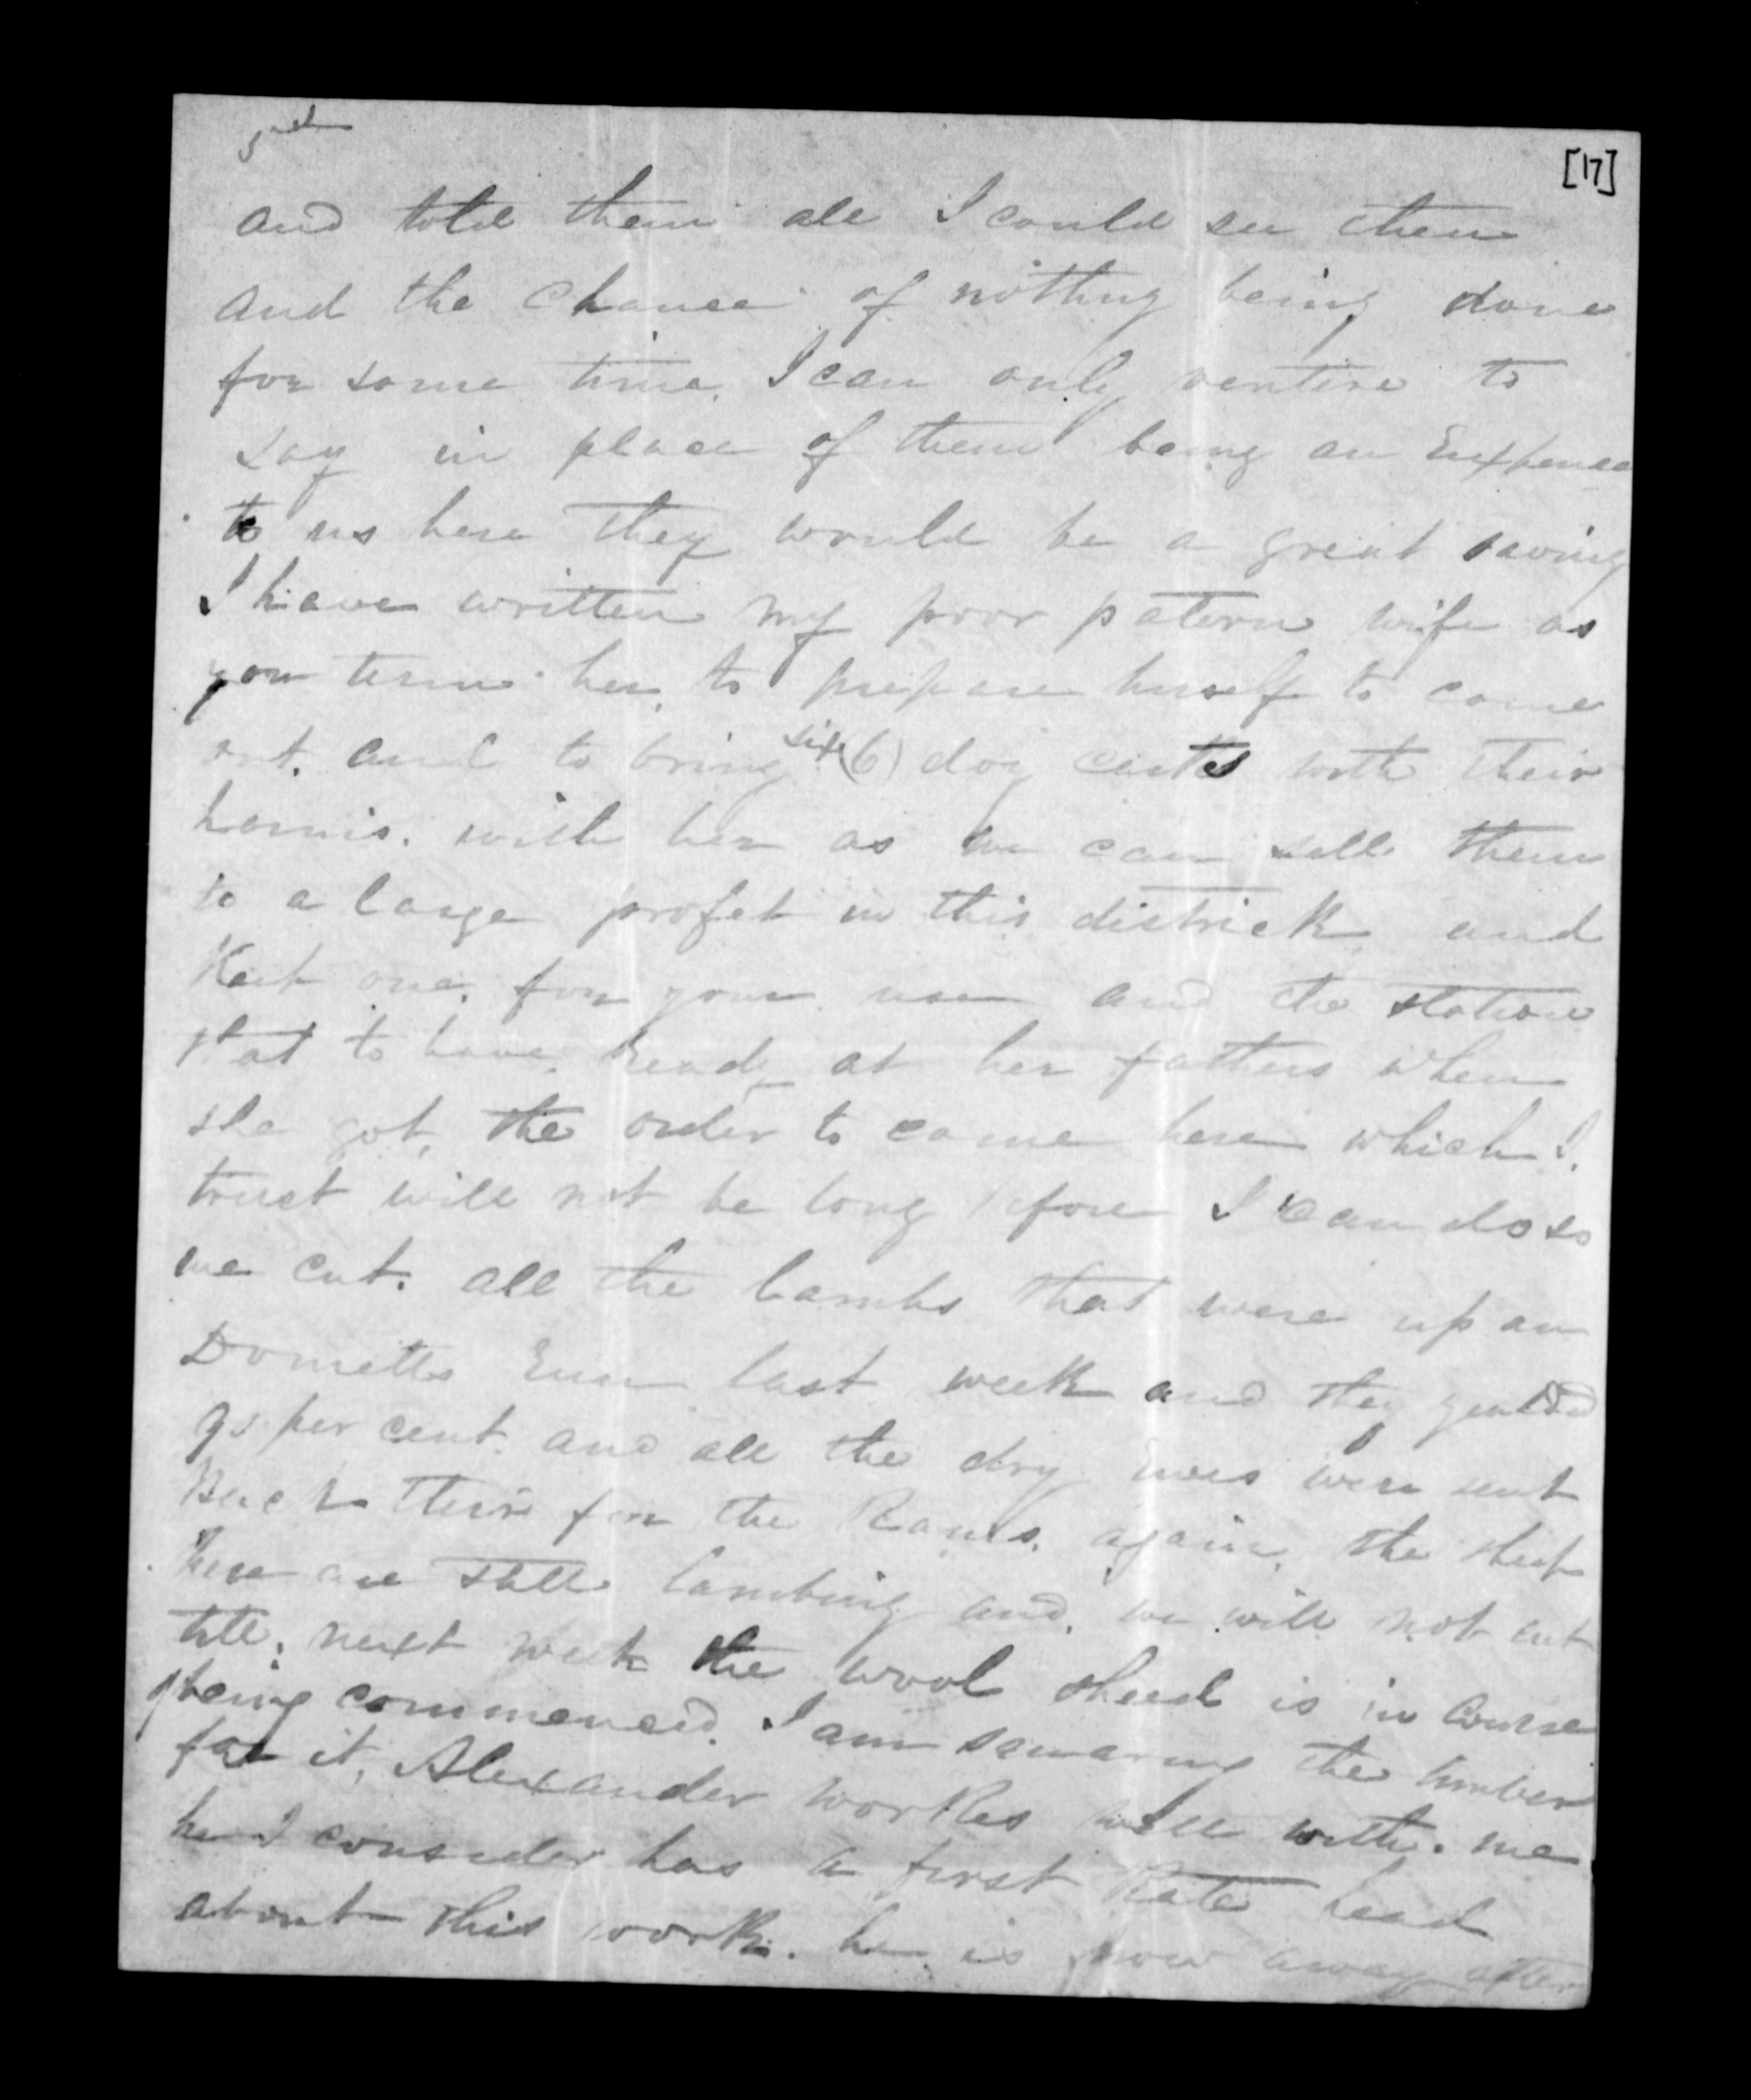 5th
[17]
and told them all I could see them
and the chance of nothing being done
for some time. I can only ventire to
say in place of them being an Expence
to us here they would be a great saving
I have written my poor patern wife as
you term her, to prepare herself to come
out. and to bring six (6) dog carts with their
harnis. with her as we can sell them
to a large profet in this districk and
one. for your use and the station
to have ready at her fathers when
she got, the order to come here which I.
trust will not be long before I can do so
we cut. all the lambs that were up an
Dometts Run last week and they
per cent. and all the dry Ewes were sent
Back their for the Rams. again. the sheep
here are still lambing and. we will not cut
till. next week the wool sheed is in Course
of being commenced. I am squaring the timber
for it, Alexander workes well with. me
he I consider has a first Rate head
about this work. he is now away after